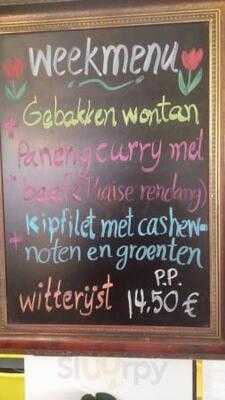 weekmenu
+ Gebakken wontan
Paneng curry met
beef (Thaise rendang)
+ kipfilet met cashew-
noten en groenten
P.P.
witterijst 14.50 €
Sluurpy